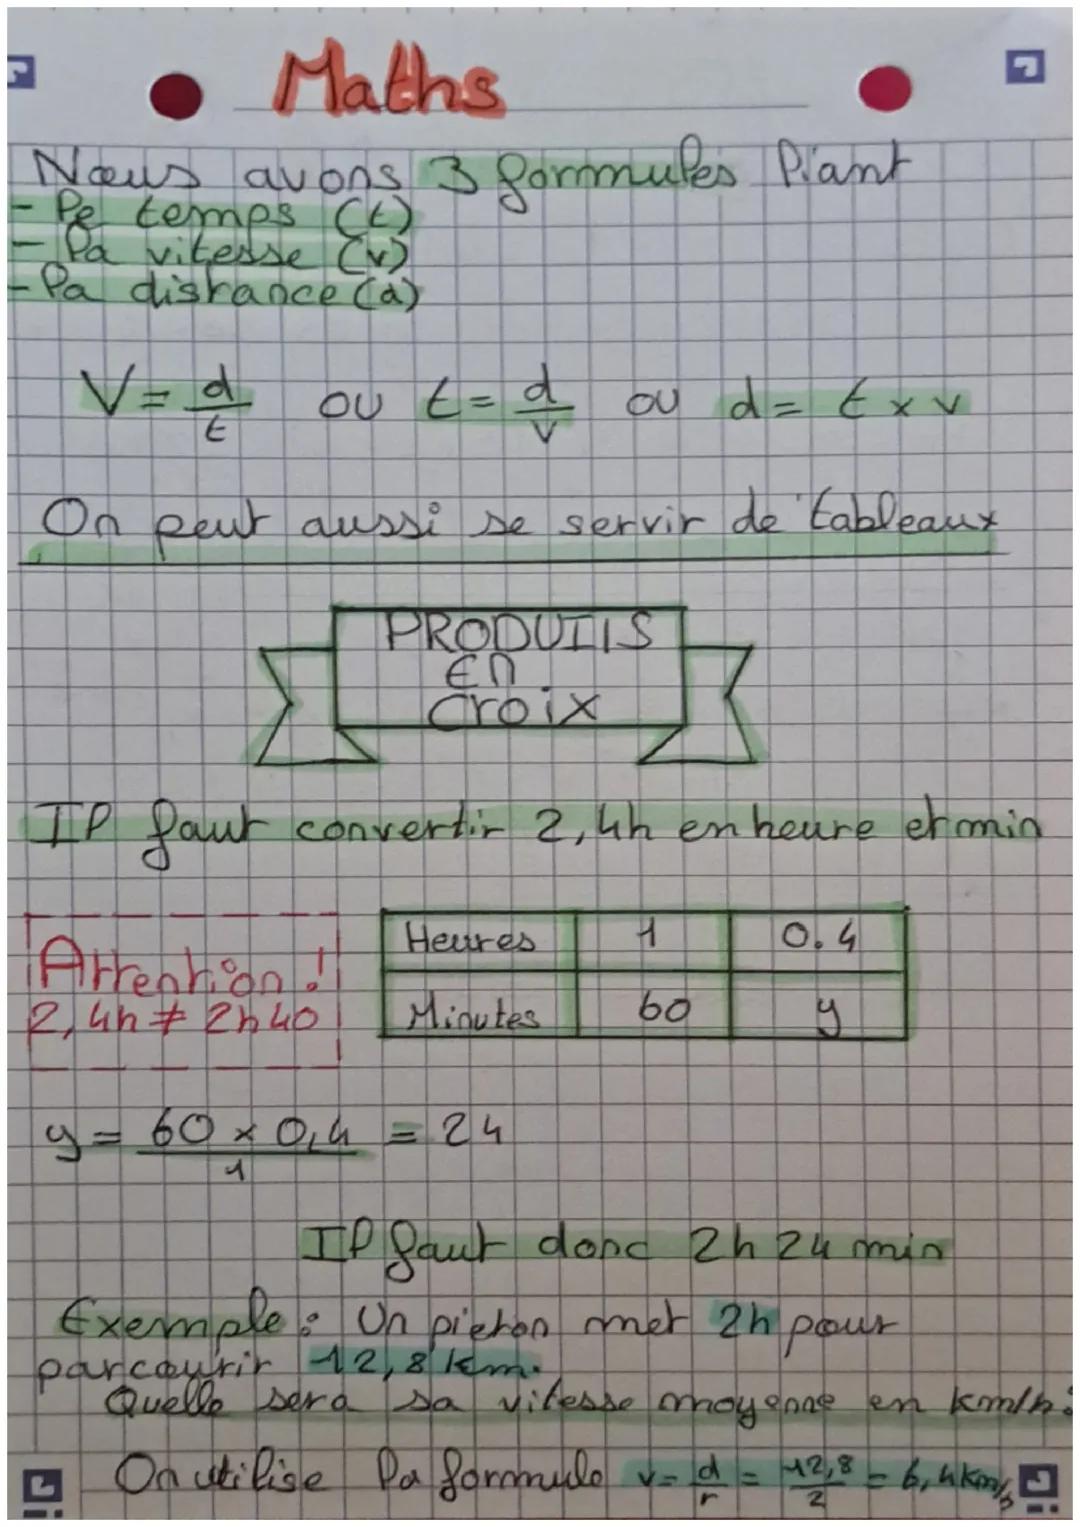 Maths
Nous avons 3 formules liant
- le temps (t)
- la vitesse (v)
- la distance (d)
V = d/t ou t = d/v ou d = t x v
On peut aussi se servir de tableaux
PRODUITS
En
croix
Il faut convertir 2,4h en heure et min
Attention !
2,4h ≠ 2h40
Heures 1 0.4
Minutes 60 y
y = 60 x 0,4 / 1 = 24
Il faut donc 2h 24 min
Exemple : Un piéton met 2h pour
parcourir 12,8 km.
Quelle sera sa vitesse moyenne en km/h :
On utilise la formule v = d/t = 12,8/2 = 6,4 km/h